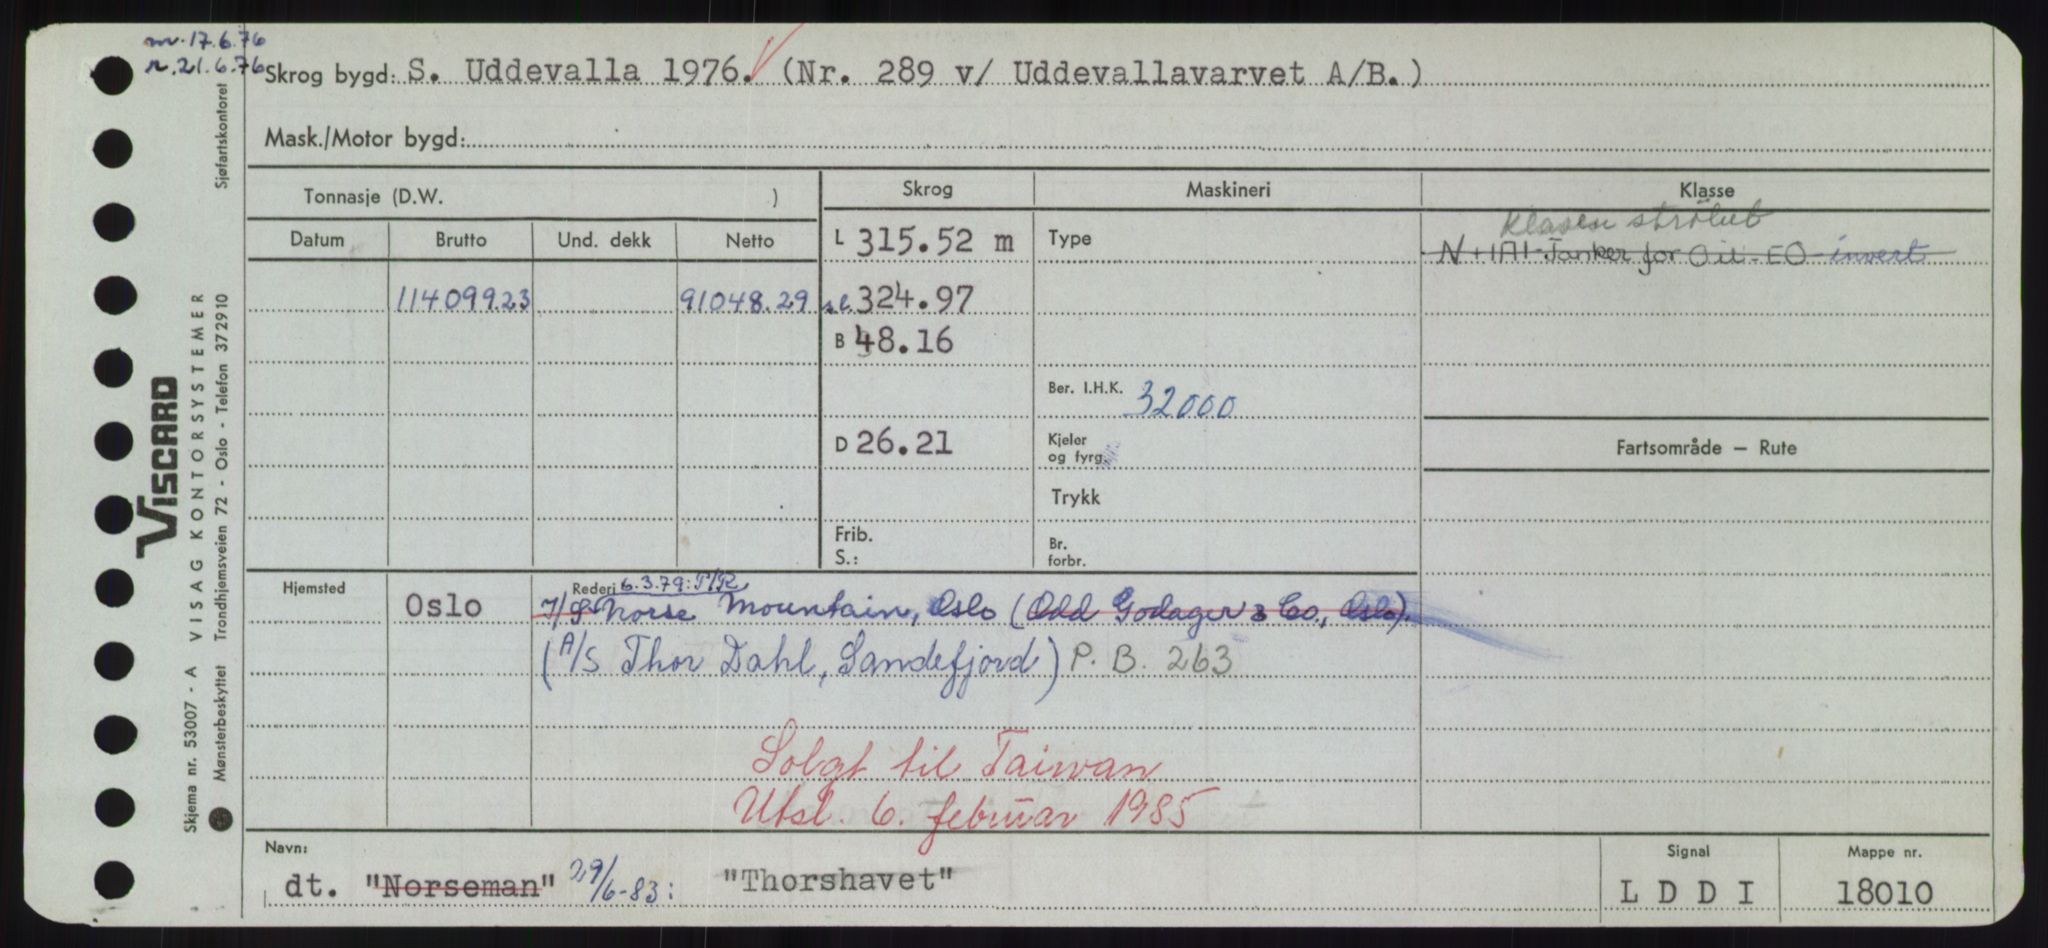 m. 17.6.76
r. 21.6.76
Skrog bygd: S. Uddevalla 1976. (Nr. 289 v/ Uddevallavarvet A/B.)
Mask./Motor bygd:
Tonnasje (D.W. )
Skrog
Maskineri
Klasse
Datum
Brutto
Und. dekk
Netto
L 315.52 m
Type
Klassen strøket
N+1A1-Tanker for Oil-EO-invert
114099.23
91048.29
s.l. 324.97
B 48.16
Ber. I.H.K. 32000
D 26.21
Kjeler
og fyrg.
Fartsområde — Rute
Trykk
Frib.
S.:
Br.
forbr.
Hjemsted
Oslo
Rederi 6.3.79: P/R
I/S Norse Mountain, Oslo (Odd Godager & Co., Oslo).
(A/S Thor Dahl, Sandefjord) P. B. 263
Solgt til Taiwan
Utsl. 6. februar 1985
Navn:
dt. "Norseman" 29/6-83: "Thorshavet"
Signal
LDDI
Mappe nr.
18010
VISCARD
Skjema nr. 53007 - A VISAG KONTORSYSTEMER
Mønsterbeskyttet Trondhjemsveien 72 - Oslo - Telefon 372910
Sjøfartskontoret